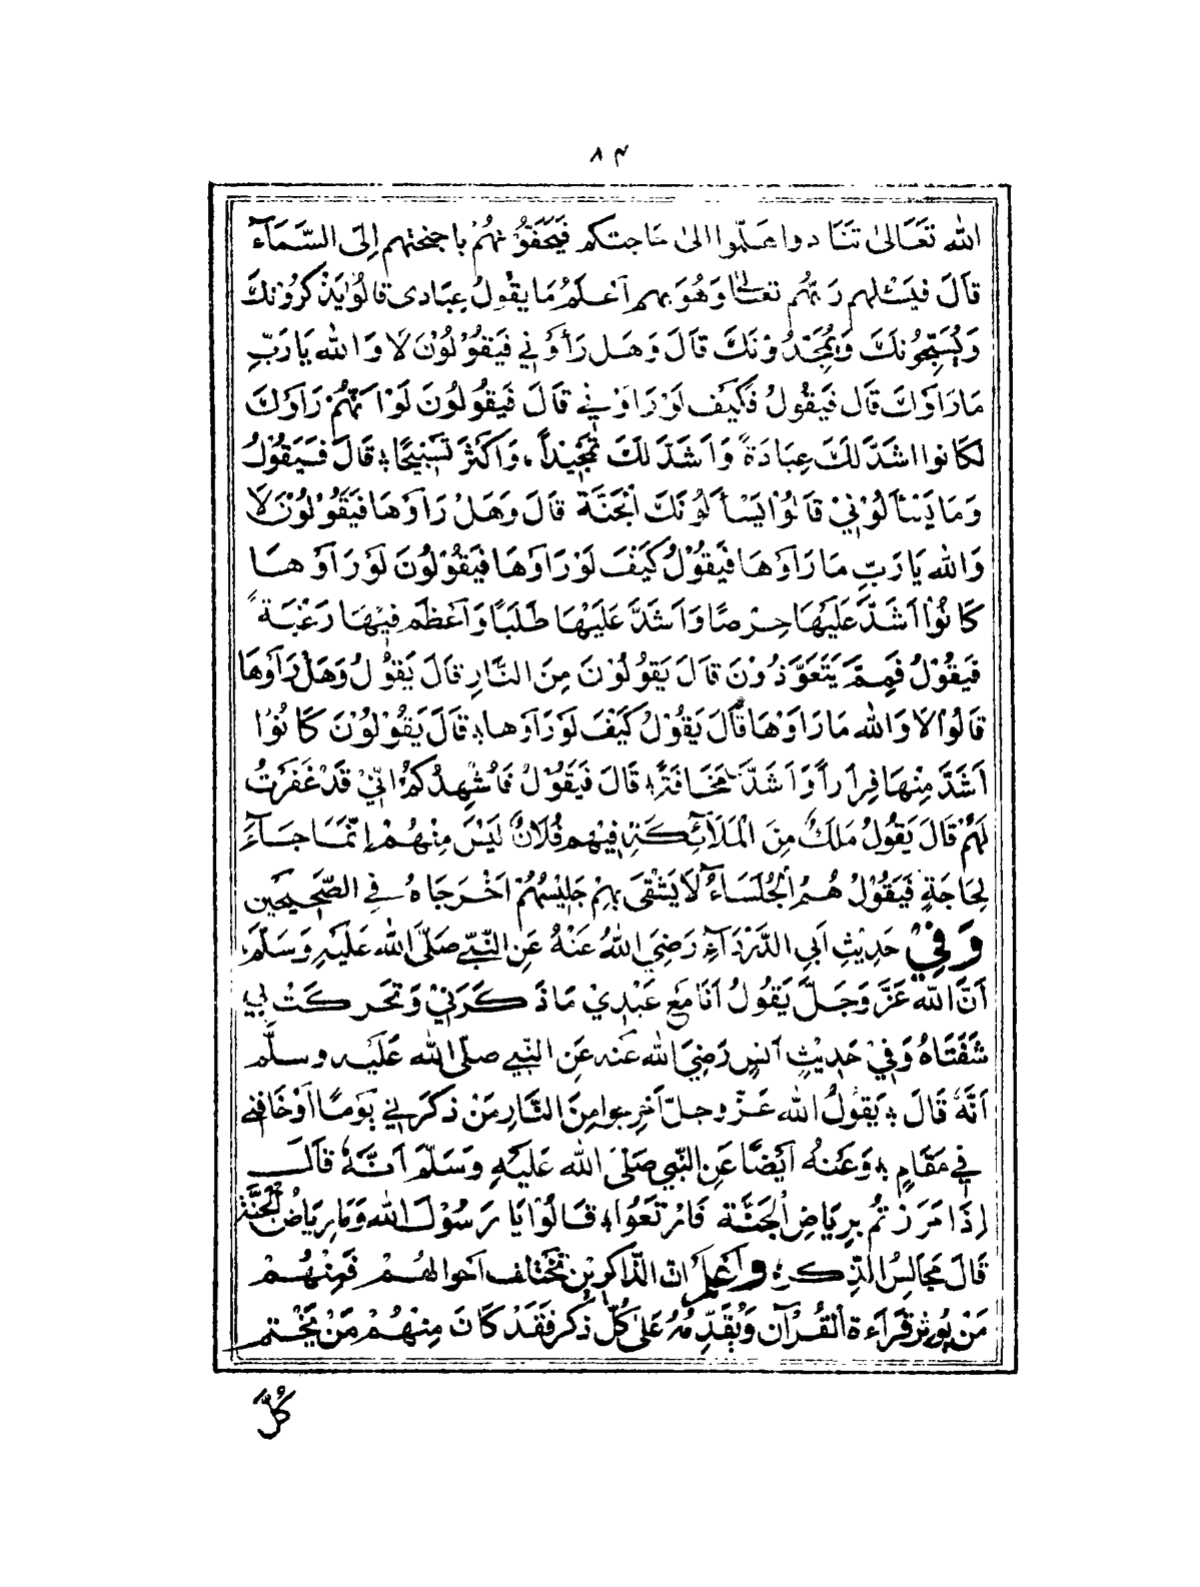 ٨٤
الله تَعَالىٰ تَنَادوا هَلمّوا الىٰ حَاجتكم فَيَحُفّوُنهُمْ باجنحتهم اِلىَ السَّمَآءَ
قَالَ فيَسْئلهم رَبهُم تعالىٰ وَهُوَ بهم اَعْلَمُ مَا يقُولُ عِبَادى قالوُا يَذْكرُوْنكَ
وَيُسَبّحُونكَ وَيُمَجّدُوْنَكَ قَالَ وَهَل رَأوْنِي فَيَقوُلوْنَ لَا وَالله يَارَبّ
مَارَاَوكَ قَال فَيقُولُ فَكيَف لَوْ رَاوْنِي قَالَ فَيَقوُلوُنَ لَوْا نّهُمْ رَاَوكَ
لكَانوا اشَدّ لكَ عِبَادَةً وَاَشَدَ لكَ تمَجِيْداً، وَاَكثَرَ تَسْبيْحًا؛ قَالَ فَيَقوُلُ
وَمَا يَسْأَلُوْنِيْ قَالوُا يَسْألوُنكَ الْجَنّةَ قَالَ وَهَلْ رَاَوْهَا فيَقُوْلوُنَ لَا
وَالله يَا رَبّ مَا رَاَوْهَا فيَقوُلُ كيَفَ لَوْ رَاَوهَا فيَقوُلوُنَ لَوْ رَاَوْ هَا
كَا نوُا اَشَدّ عَلَيْهَا حِرْصًا وَاَشَدَّ عَلَيْهَا طَلَبًا وَاَعْظَم فِيْهَا رَغْبَة ً
فَيَقوُلُ فَمِمَّ يَتَعَوَّذُوْنَ قَالَ يَقوُلوُنَ مِنَ النَّارِ قَالَ يَقوُلُ وَهَلْ رَاَوهَا
قَالوُا لَا وَالله مَا رَاَوْهَا قَالَ يَقوُلُ كَيَفَ لَوْ رَاَوها؛ قَالَ يَقوُلوُنَ كَانوُا
اَشَدَّ مِنْهَا فِرَاراً وَاَشَدَّ مَخَافَةً؛ قَالَ فَيَقوُلُ فَاُشْهِدُكمُ انّيْ قَدْ غَفَرْتُ
لَهُمْ قَالَ يَقوُلُ مَلَكٌ مِنَ الْمَلَآئِكَةِ فِيهم فُلَانٌ لَيْسَ مِنْهُمْ اِنّمَا جَآءَ
لِحَاجَةٍ فَيَقوُلُ هُمُ الْجُلَسَاءُ لَا يَشْقىَ بِهِمْ جَلِيْسُهُمْ اَخْرَجَاهُ فِي الصَّحِيْحَيْنِ
وَفِيْ حَدِيْثِ اَبي الدَّرْدَآءِ رَضِيَ اللهُ عَنْهُ عَنِ النّبيّ صَلّىَ الله عَلَيْهِ وَسَلّمَ
اَنَّ الله عَزَّ وَجَلَّ يَقُولُ اَنَا مَعَ عَبْدِيْ مَا ذَكَرَنيْ وَتحَركَتْ بي
شَفَتَاهُ وَفِيْ حَدِيْثِ اَنسٍ رَضِيَ الله عَنه عَنِ النّبي صلّى الله عَلَيْه وسلَّم
اَنّهُ قَالَ؛ يَقوُلُ الله عَزّ وجلّ اَخرِجوا مِنَ النَّارِ مَنْ ذكرَني يَوْمًا اَوْ خَافَني
فِي مَقَامٍ؛ وَعَنْهُ اَيْضًا عَنِ النّبي صَلىَ الله عَلَيْهِ وَسَلّمَ اَنَّهُ قَالَ
اِذَا مَرَرْتُمْ بِرِيَاضِ الجَنّة فَارْتَعَوُا؛ قَالوُا يَا رَسُوْلَ الله وَمَا رِيَاضُ الْجَنَّةِ
قَالَ مَجَالِسُ الذِّكرِ؛ وَاَعْلَمْ انّ الذّاكرِيْنَ تَخْتَلف اَحوالهُمْ فَمِنْهُمْ
مَنْ يُوثر قرَاءة القُرْآن وَيُقَدِّمُهُ عَلىٰ كُلّ ذكر فَقَدْ كَانَ مِنْهُمْ مَنْ يَخْتم
كُلّ